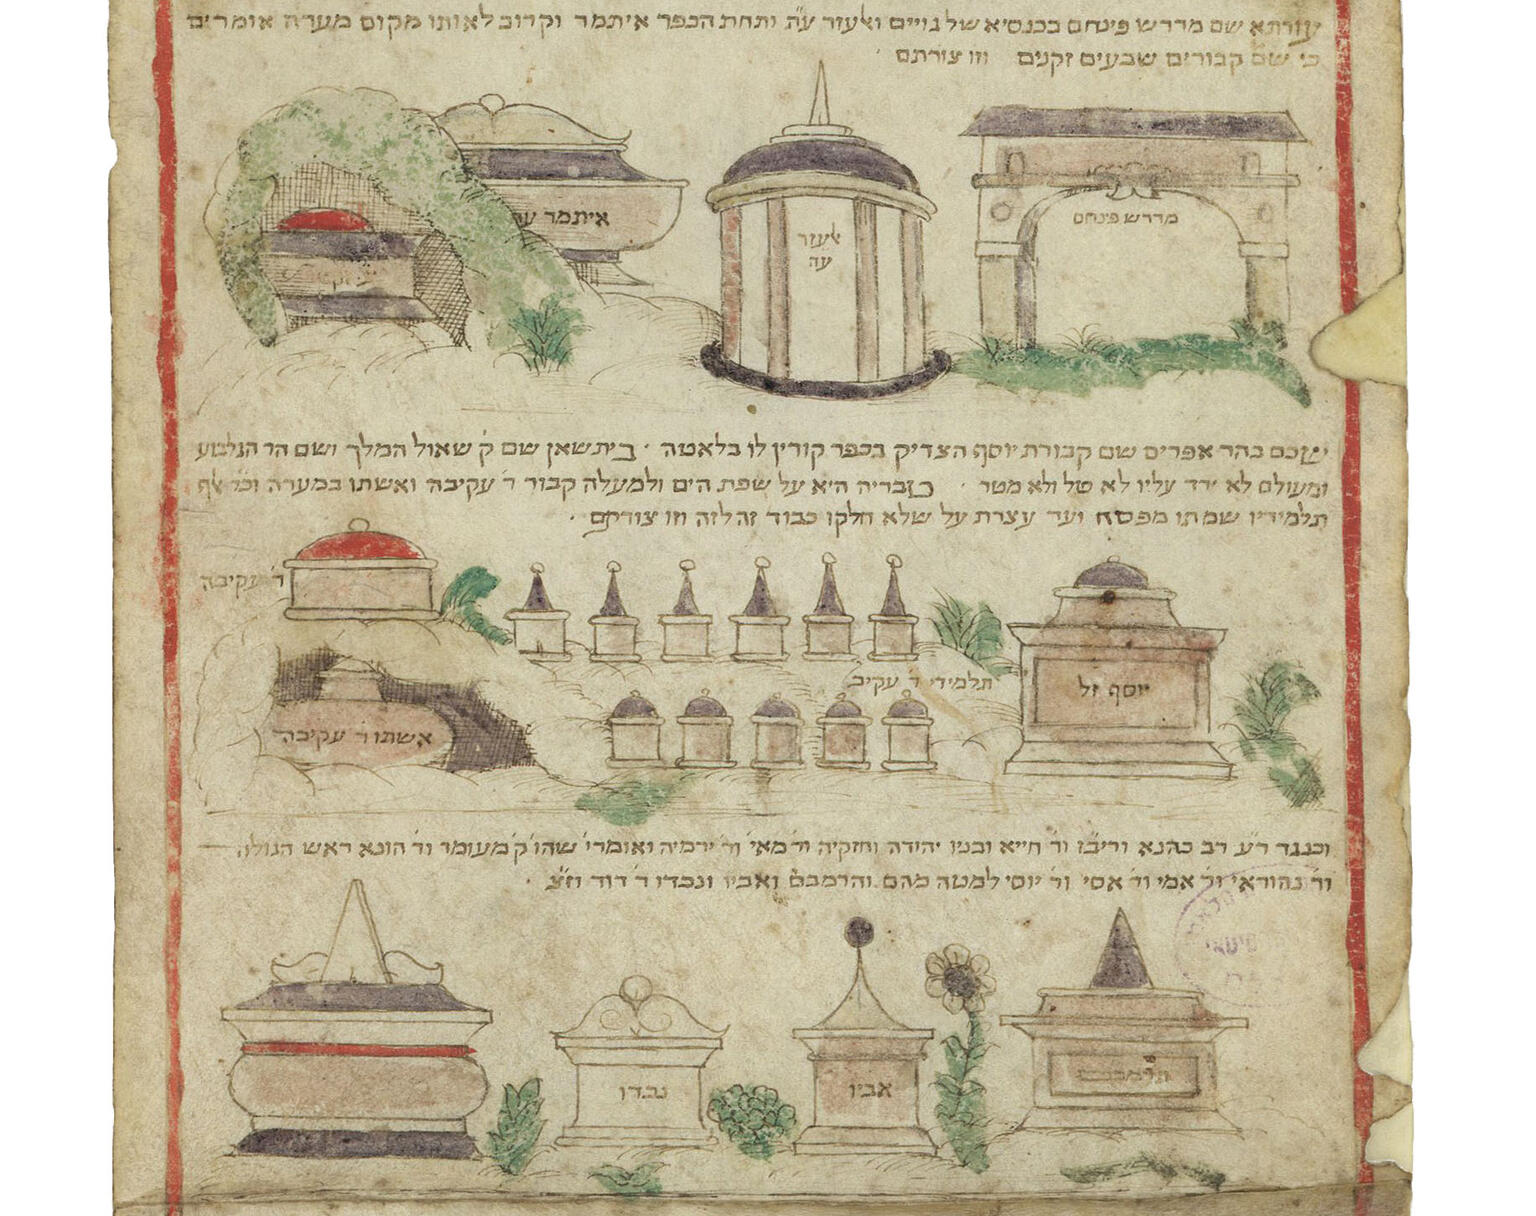 עוורתא שם מדרש פינחם בכנסיא של גויים ואלעזר ע״ה ותחת הכפר איתמר וקרוב לאותו מקום מערה אומרים
כי שם קבורים שבעים זקנים וזו צורתם
מדרש פינחם
אלעזר
עה
איתמר
שכם בהר אפרים שם קבורת יוסף הצדיק בכפר קורין לו בלאטה · בית שאן שם ק׳ שאול המלך ושם הר הגלבוע
ומעולם לא ירד עליו לא טל ולא מטר · טבריה היא על שפת הים ולמעלה קבור ר׳ עקיבה ואשתו במערה וכ״ד אלף
תלמידיו שמתו מפסח ועד עצרת על שלא חלקו כבוד זה לזה וזו צורתם ·
ר׳ עקיבה
תלמידי ר׳ עקיב׳
יוסף זל
אשתו ר׳ עקיבה
וכנגד ר״ע רב כהנא וריב״ז ור׳ חייא ובניו יהודה וחזקיה ור׳ מאי׳ ור׳ ירמיה ואומרי׳ שהו׳ ק׳ מעומד ור׳ הונא ראש הגולה
ור׳ נהוראי ור׳ אמי ור׳ אסי ור׳ יוסי למטה מהם והרמב״ם ואביו ונכדו ר׳ דוד וז״צ ·
אביו
נכדו